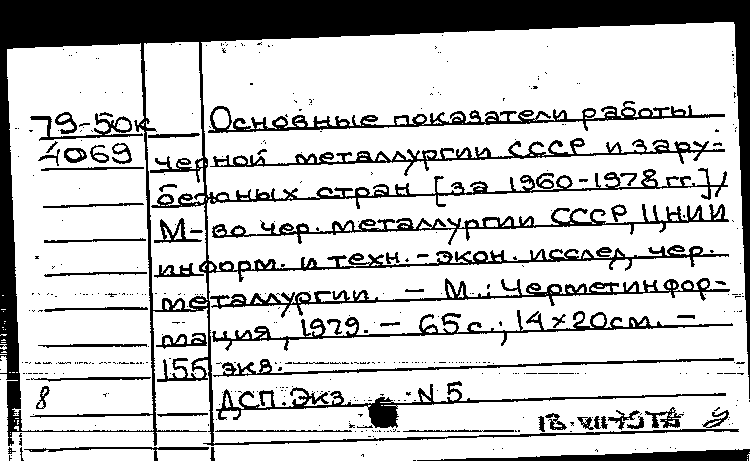 79-50к Основные показатели работы
4069 черной металлургии СССР и зару-
бежных стран [за 1960-1978 гг.]/
М-во чер. металлургии СССР, ЦНИИ
информ. и техн.-экон. исслед. чер.
металлургии. — М.: Черметинфор-
мация, 1979. — 65 с.; 14×20 см. —
155 экз.
8 ДСП. Экз. N 5.